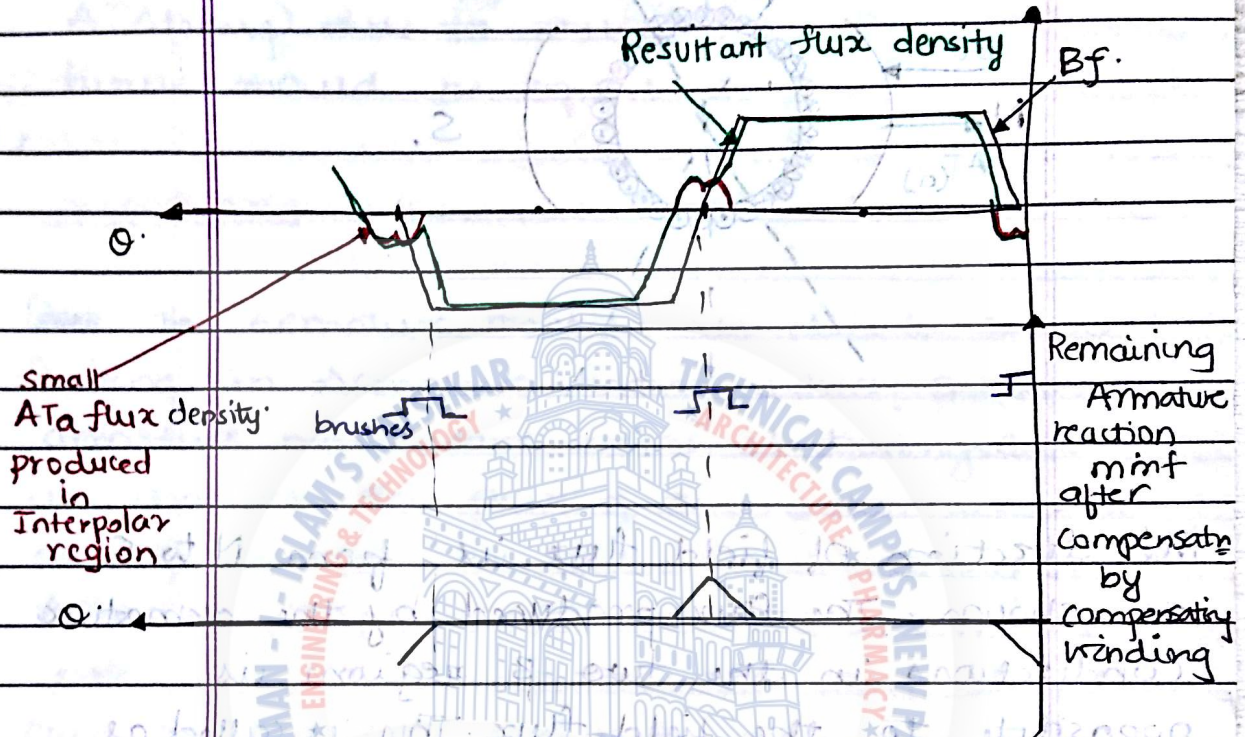 Resultant flux density
Bf.
θ.
small
ATa flux density.
produced
in
Interpolar
region
brushes
Remaining
Armature
reaction
mmf
after
compensatn
by
compensating
winding
θ.
ISLAM'S KALSEKAR TECHNICAL CAMPUS, NEW
ENGINEERING & TECHNOLOGY ★ ARCHITECTURE ★ PHARMACY ★